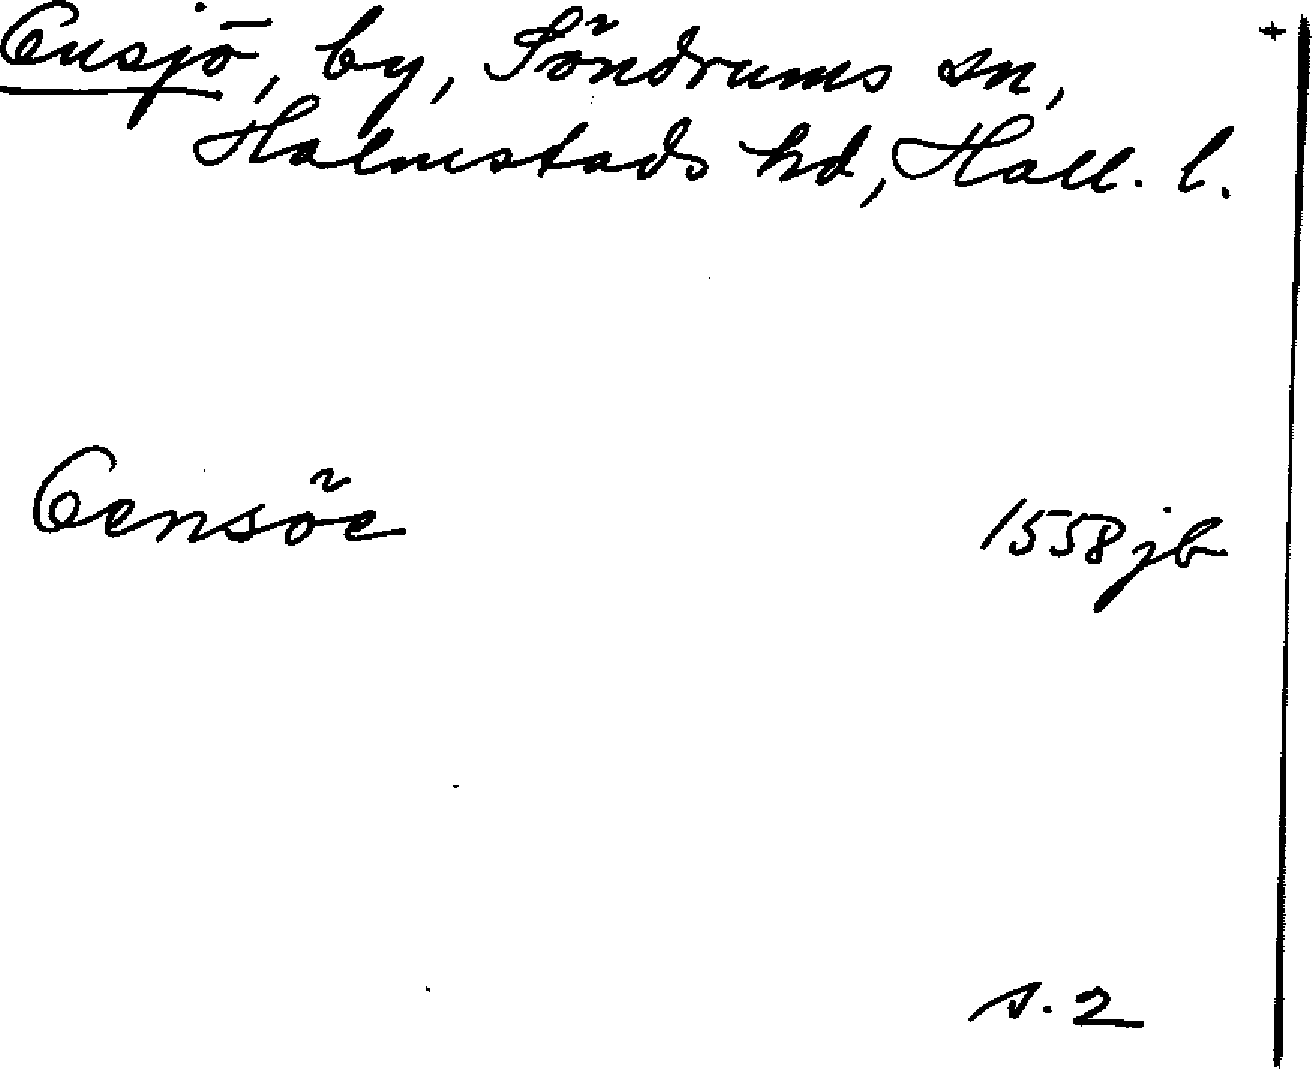 Onsjö, by, Söndrums sn,
Halmstads hd, Hall. l.
Oensöe 1558 jb
s. 2